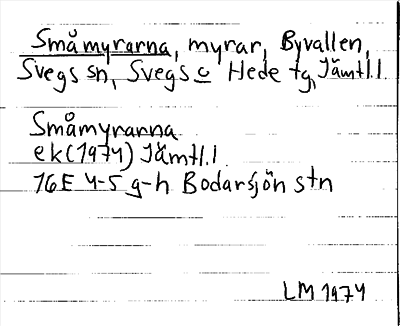 Småmyrarna, myrar, Byvallen,
Svegs sn, Svegs o Hede tg, Jämtl.l
Småmyrarna
ek(1974) Jämtl.l
16E 4-5 g-h Bodarsjön stn
LM 1974